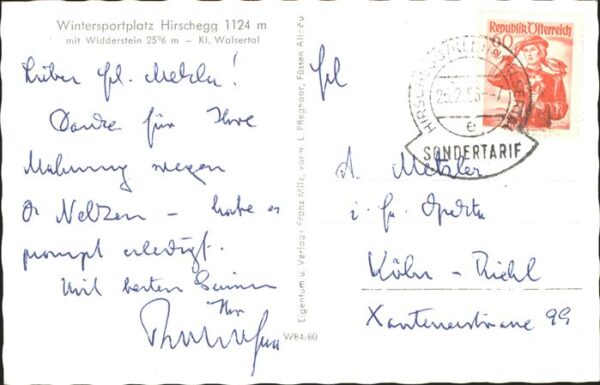 Wintersportplatz Hirschegg 1124 m
mit Widderstein 2536 m – Kl. Walsertal
Lieber Frl. Metzler!
Danke für Ihre
Mahnung wegen
Dr Neltzen – habe es
prompt erledigt.
Mit besten Grüssen
Ihr
Eigentum u. Verlag: Franz Milz, vorm. L. Pflegnaar, Füssen Allgäu
W84/60
Republik Österreich
60
25.2.53
e
SONDERTARIF
Frl
A. Metzler
i. Fa. Operta
Köln – Riehl
Xantenerstrasse 99